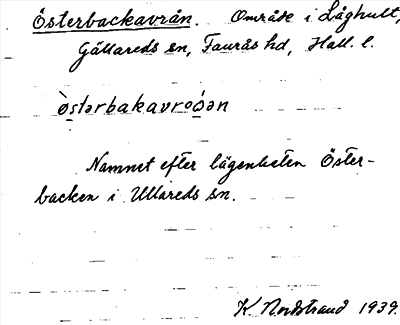 Österbackavrån. Område i Låghult,
Gällareds sn, Faurås hd, Hall. l.
Namnet efter lägenheten Öster-
backen i Ullareds sn.
K. Nordstrand 1939.